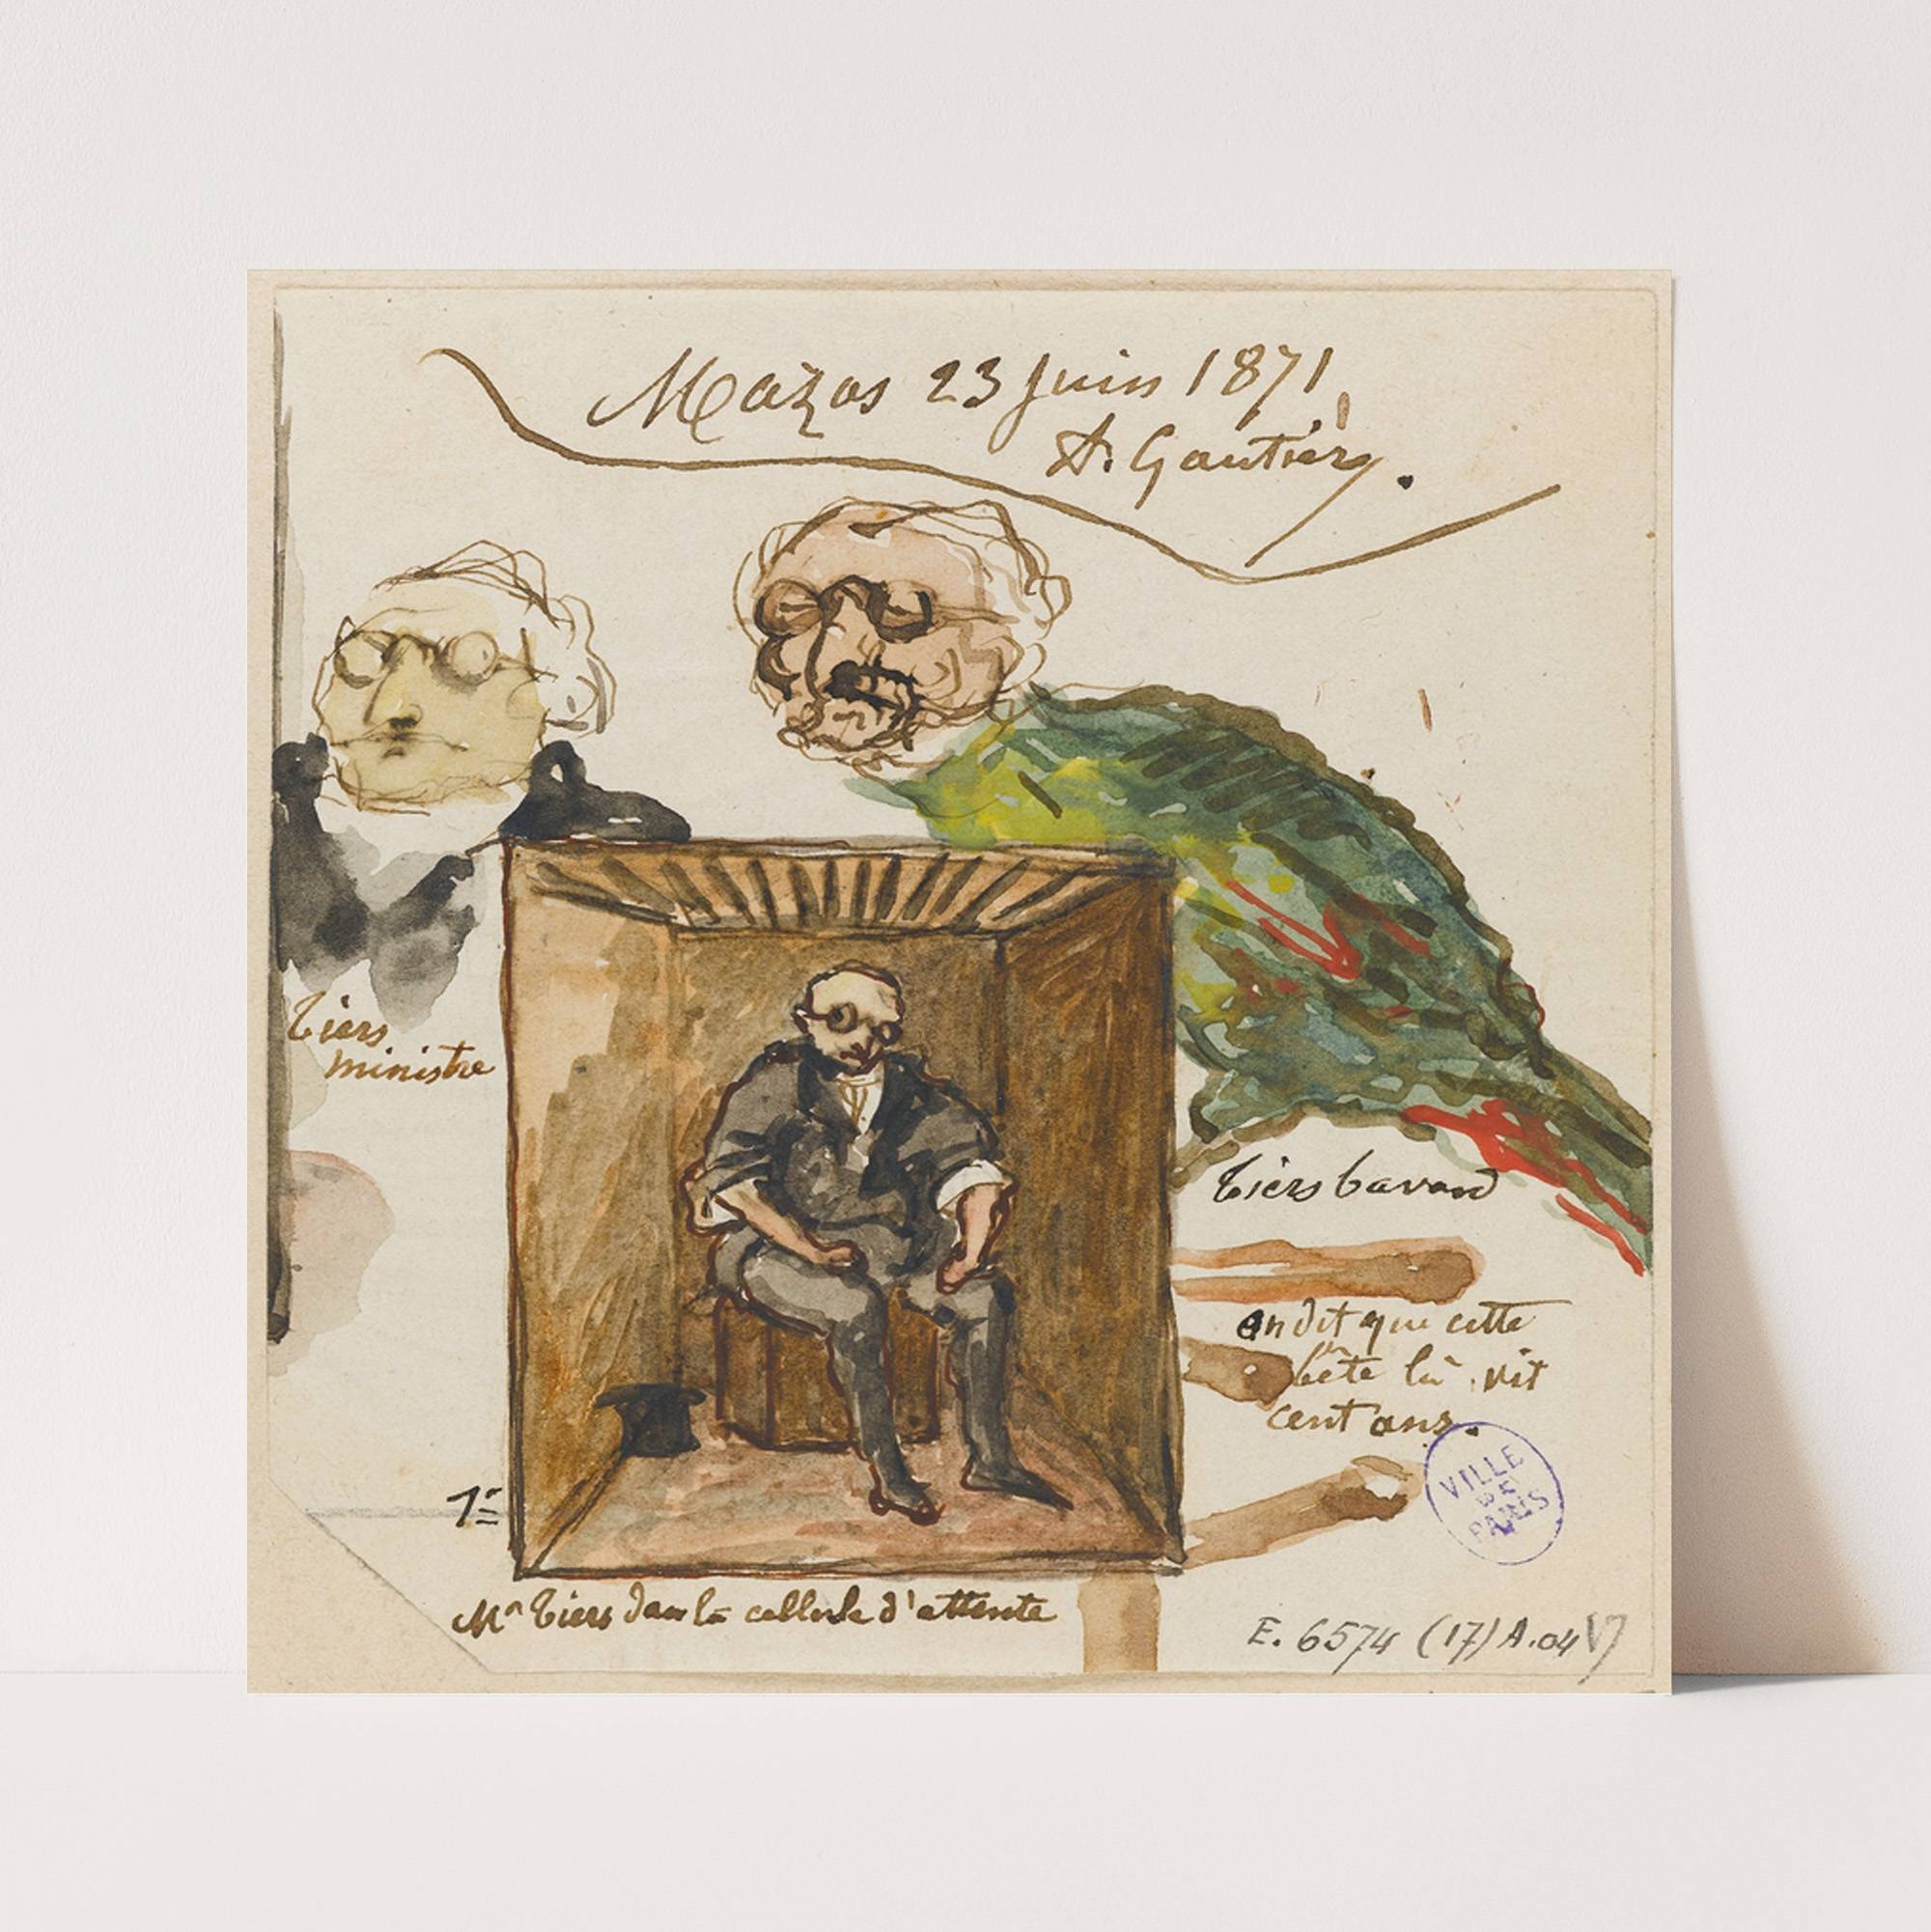 Mazas 23 Juin 1871
A. Gautier.
Tiers
ministre
Tiers bavard
on dit que cette
bête là vit
cent ans.
VILLE
DE
PARIS
1r
Mr Tiers dans la cellule d'attente
E. 6574 (17) A.04